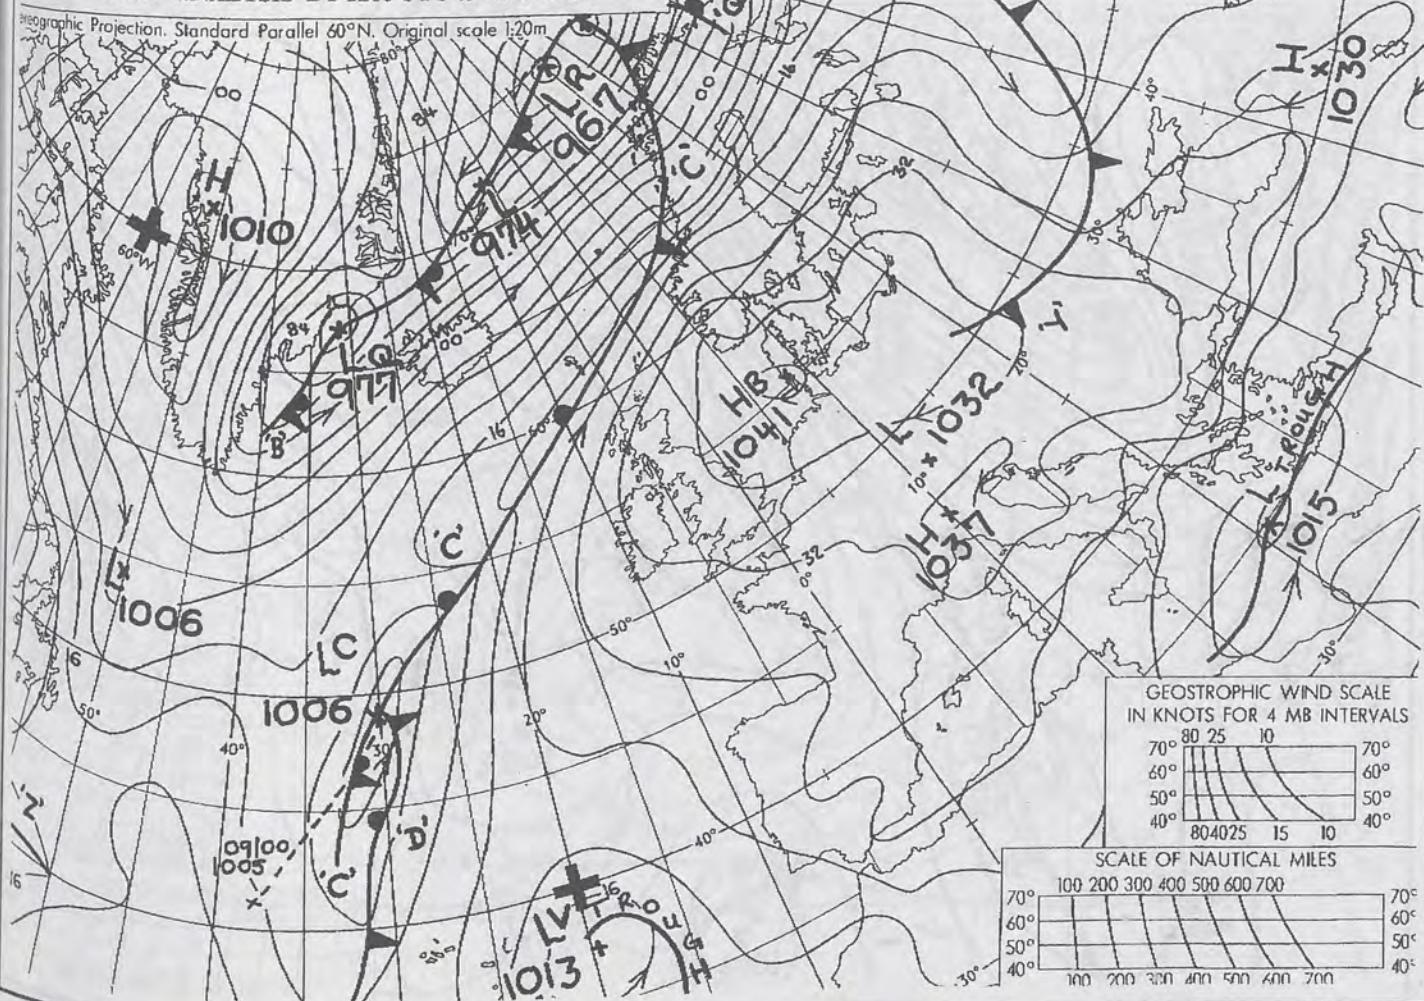 Projection. Standard Parallel 60°N. Original scale 1:20m
80°
00
84
H
1010
60°W
L R
967
L
974
'C'
00
16
32
40°
30°
H
1030
84
L Q
977
'B'
00
16
60°
H B
1041
L
1032
20°
10°
H
1037
L TROUGH
1015
30°
'C'
L
1006
16
L C
1006
50°
40°
30°
20°
10°
50°
32
0°
'Z'
16
09/00
1005
'D'
'C'
40°
16
TROUGH
LV
1013
30°
GEOSTROPHIC WIND SCALE
IN KNOTS FOR 4 MB INTERVALS
80 25 10
70° 70°
60° 60°
50° 50°
40° 40°
80 40 25 15 10
SCALE OF NAUTICAL MILES
100 200 300 400 500 600 700
70° 70°
60° 60°
50° 50°
40° 40°
100 200 300 400 500 600 700